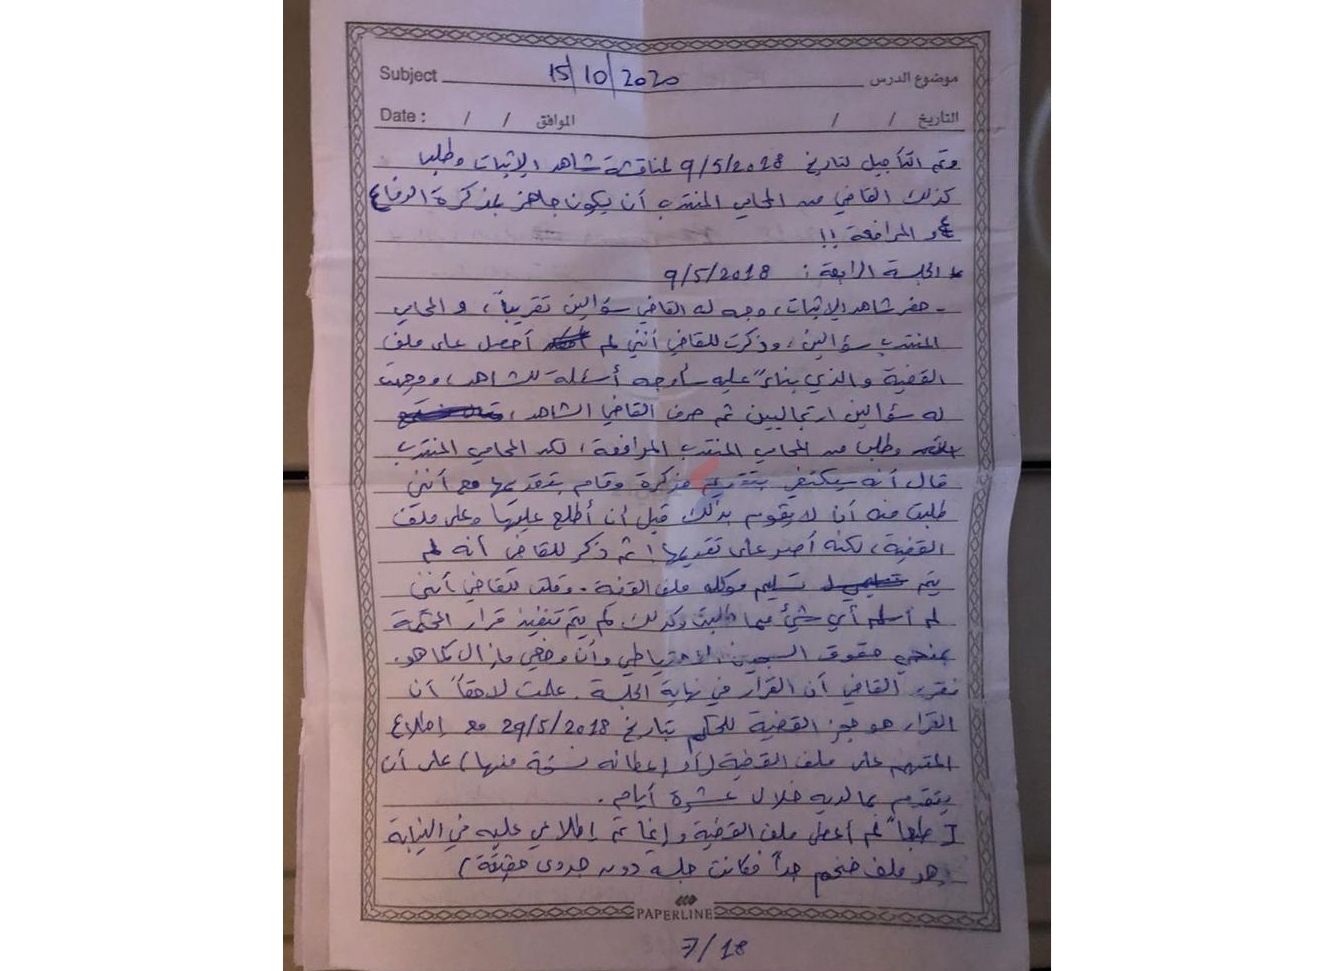 Subject 15/10/2020 موضوع الدرس
Date : / / الموافق / / التاريخ
وتم التأجيل لتاريخ 9/5/2018 لمناقشة شاهد الإثبات وطلب
كذلك القاضي من المحامي المنتدب أن يكون جاهز بمذكرة الدفاع
و المرافعة !!
* الجلسة الرابعة : 9/5/2018
- حضر شاهد الإثبات، وجه له القاضي سؤالين تقريباً، و المحامي
المنتدب سؤالين، وذكرت للقاضي أنني لم أحصل على ملف
القضية والذي بناءً عليه سأوجه أسئلة للشاهد، ووجهت
له سؤالين ارتجاليين ثم صرف القاضي الشاهد،
وطلب من المحامي المنتدب المرافعة، لكن المحامي المنتدب
قال أنه سيكتفي بتقديم مذكرة وقام بتقديمها مع أنني
طلبت منه أن لا يقوم بذلك قبل أن أطلع عليها وعلى ملف
القضية، لكنه أصر على تقديمها! ثم ذكر للقاضي أنه لم
يتم تسليم موكله ملف القضية. وقلت للقاضي أنني
لم أسلم أي شيء مما طلبت وكذلك لم يتم تنفيذ قرار المحكمة
بمنحي حقوق السجين الاحتياطي وأن وضعي مازال كما هو.
فقرر القاضي أن القرار في نهاية الجلسة. علمت لاحقاً أن
القرار هو حجز القضية للحكم بتاريخ 29/5/2018 مع إطلاع
المتهم على ملف القضية (أو إعطائه نسخة منها) على أن
يتقدم بما لديه خلال عشرة أيام.
طبعاً لم أعطى ملف القضية وإنما تم إطلاعي عليه في النيابة
وهو ملف ضخم جداً فكانت جلسة دون جدوى حقيقة)
PAPERLINE
7/18